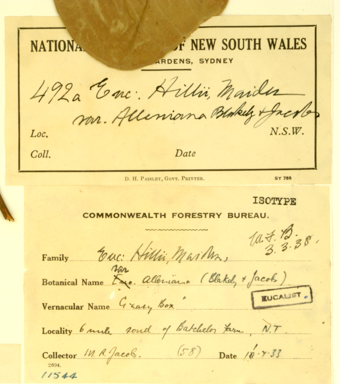 NATIONAL OF NEW SOUTH WALES
GARDENS, SYDNEY
492a Euc: Hillii, Maiden
var. Alleniana Blakely & Jacobs
Loc. N.S.W.
Coll. Date
D. H. PAISLEY, GOVT. PRINTER. ST 788
ISOTYPE
COMMONWEALTH FORESTRY BUREAU.
W.F.B.
3.3.38.
Family Euc: Hillii, Maiden,
var
Botanical Name Alleniana (Blakely & Jacobs)
Vernacular Name "Box"
EUCALIST
Locality 6 mile of Batchelor Farm, N.T.
Collector M.R. Jacobs. (58) Date 33
11544